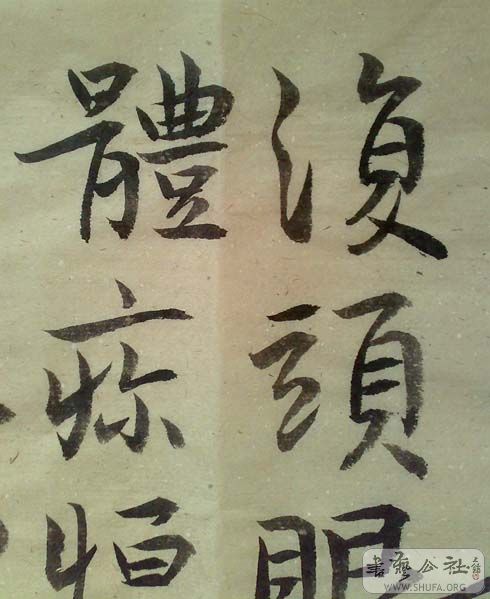 復頭
體疹
書藝公社
WWW.SHUFA.ORG